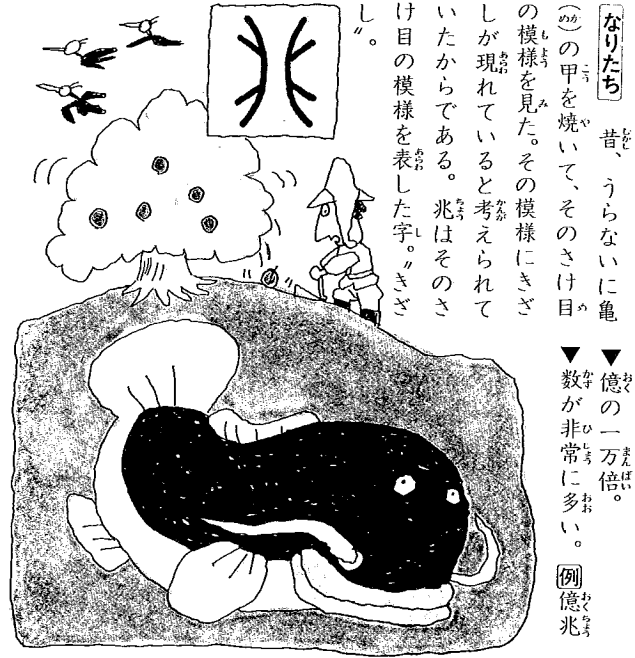 なりたち 昔、うらないに亀
（かめ）の甲を焼いて、そのさけ目
の模様を見た。その模様にきざ
しが現れていると考えられて
いたからである。兆はそのさ
け目の模様を表した字。〝きざ
し〟。
▼億の一万倍。
▼数が非常に多い。例億兆